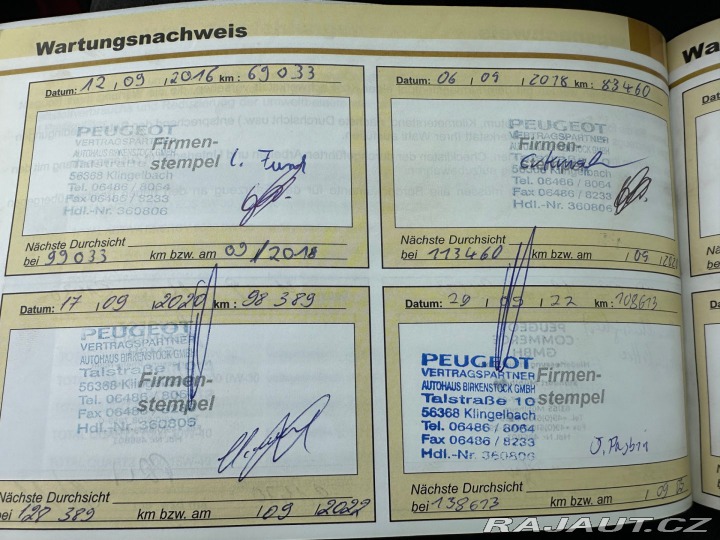 Wartungsnachweis
Datum: 12 , 09 , 2016 km : 69033
PEUGEOT
VERTRAGSPARTNER
AUTOHAUS BIRKENSTOCK GMBH
Talstraße 10
56368 Klingelbach
Tel. 06486 / 8064
Fax 06486 / 8233
Hdl.-Nr. 360806
Firmen-
stempel
Nächste Durchsicht
bei 99033 km bzw. am 09 / 2018
Datum: 06 , 09 , 2018 km : 83460
PEUGEOT
VERTRAGSPARTNER
AUTOHAUS BIRKENSTOCK GMBH
Talstraße 10
56368 Klingelbach
Tel. 06486 / 8064
Fax 06486 / 8233
Hdl.-Nr. 360806
Firmen-
Nächste Durchsicht
bei 113460 km bzw. am , 09
Datum: 17 , 09 , 2020 km : 98389
PEUGEOT
VERTRAGSPARTNER
AUTOHAUS BIRKENSTOCK GMBH
Talstraße 10
56368 Klingelbach
Tel. 06486 / 8064
Fax 06486 / 8233
Hdl.-Nr. 360806
Firmen-
stempel
Nächste Durchsicht
bei 128389 km bzw. am , 09 , 2022
Datum: 29 , 09 , 22 km : 108613
PEUGEOT
VERTRAGSPARTNER
AUTOHAUS BIRKENSTOCK GMBH
Talstraße 10
56368 Klingelbach
Tel. 06486 / 8064
Fax 06486 / 8233
Hdl.-Nr. 360806
Firmen-
stempel
Nächste Durchsicht
bei 138613 km bzw. am , 09
Wa
RAJAUT.CZ